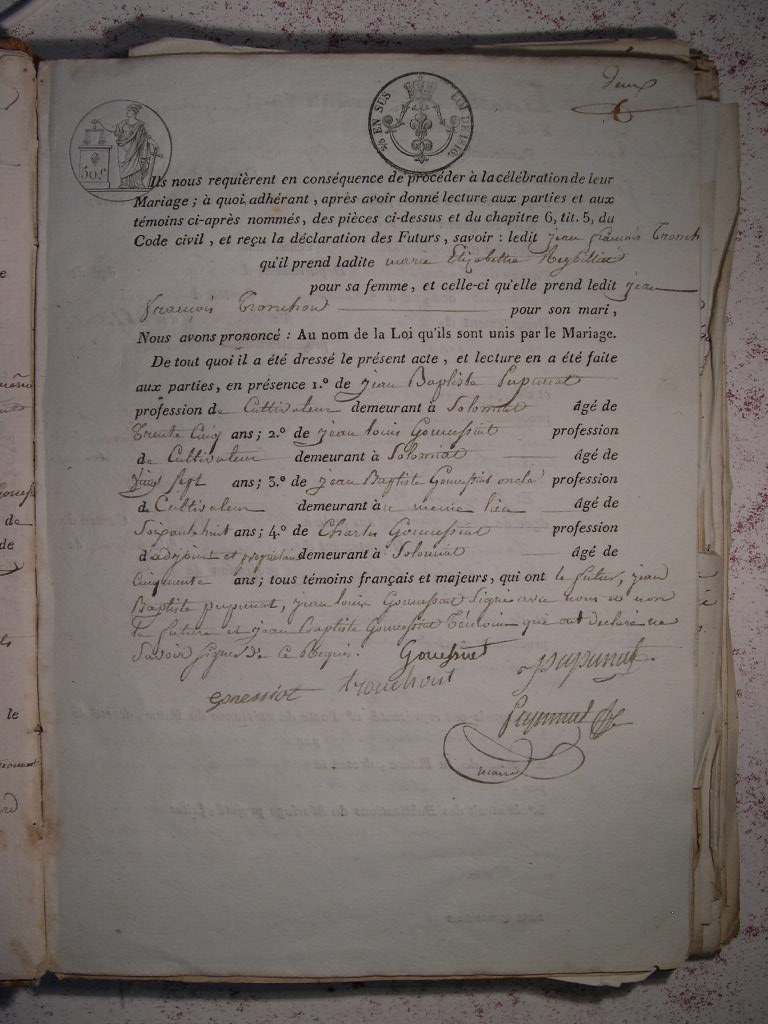 deux
6
25 EN SUS LOI DE 1816.
50c
Ils nous requièrent en conséquence de procéder à la célébration de leur
Mariage ; à quoi adhérant, après avoir donné lecture aux parties et aux
témoins ci-après nommés, des pièces ci-dessus et du chapitre 6, tit. 5, du
Code civil, et reçu la déclaration des Futurs, savoir : ledit jean françois
qu'il prend ladite marie Elizabethe
pour sa femme, et celle-ci qu'elle prend ledit jean
françois Tronchon pour son mari,
Nous avons prononcé : Au nom de la Loi qu'ils sont unis par le Mariage.
De tout quoi il a été dressé le présent acte, et lecture en a été faite
aux parties, en présence 1.° de jean Baptiste pupunat
profession de Cultivateur demeurant à Solomiat âgé de
Trente Cinq ans; 2.° de jean louis Gouessiat profession
de Cultivateur demeurant à Solomiat âgé de
sept ans; 3.° de jean Baptiste Gouessiat oncle profession
de Cultivateur demeurant à meme lieu âgé de
Soixante huit ans; 4.° de Charles Gouessiat profession
d'adjoint et propriétaire demeurant à Solomiat âgé de
Cinquante ans; tous témoins français et majeurs, qui ont le futur, jean
Baptiste pupunat, jean louis Gouessiat Signé avec nous et non
la future et jean Baptiste Gouessiat Témoin que ont declaré ne
Savoir signer de ce Requis. Gouessiat pupunat
maire
le
de
de